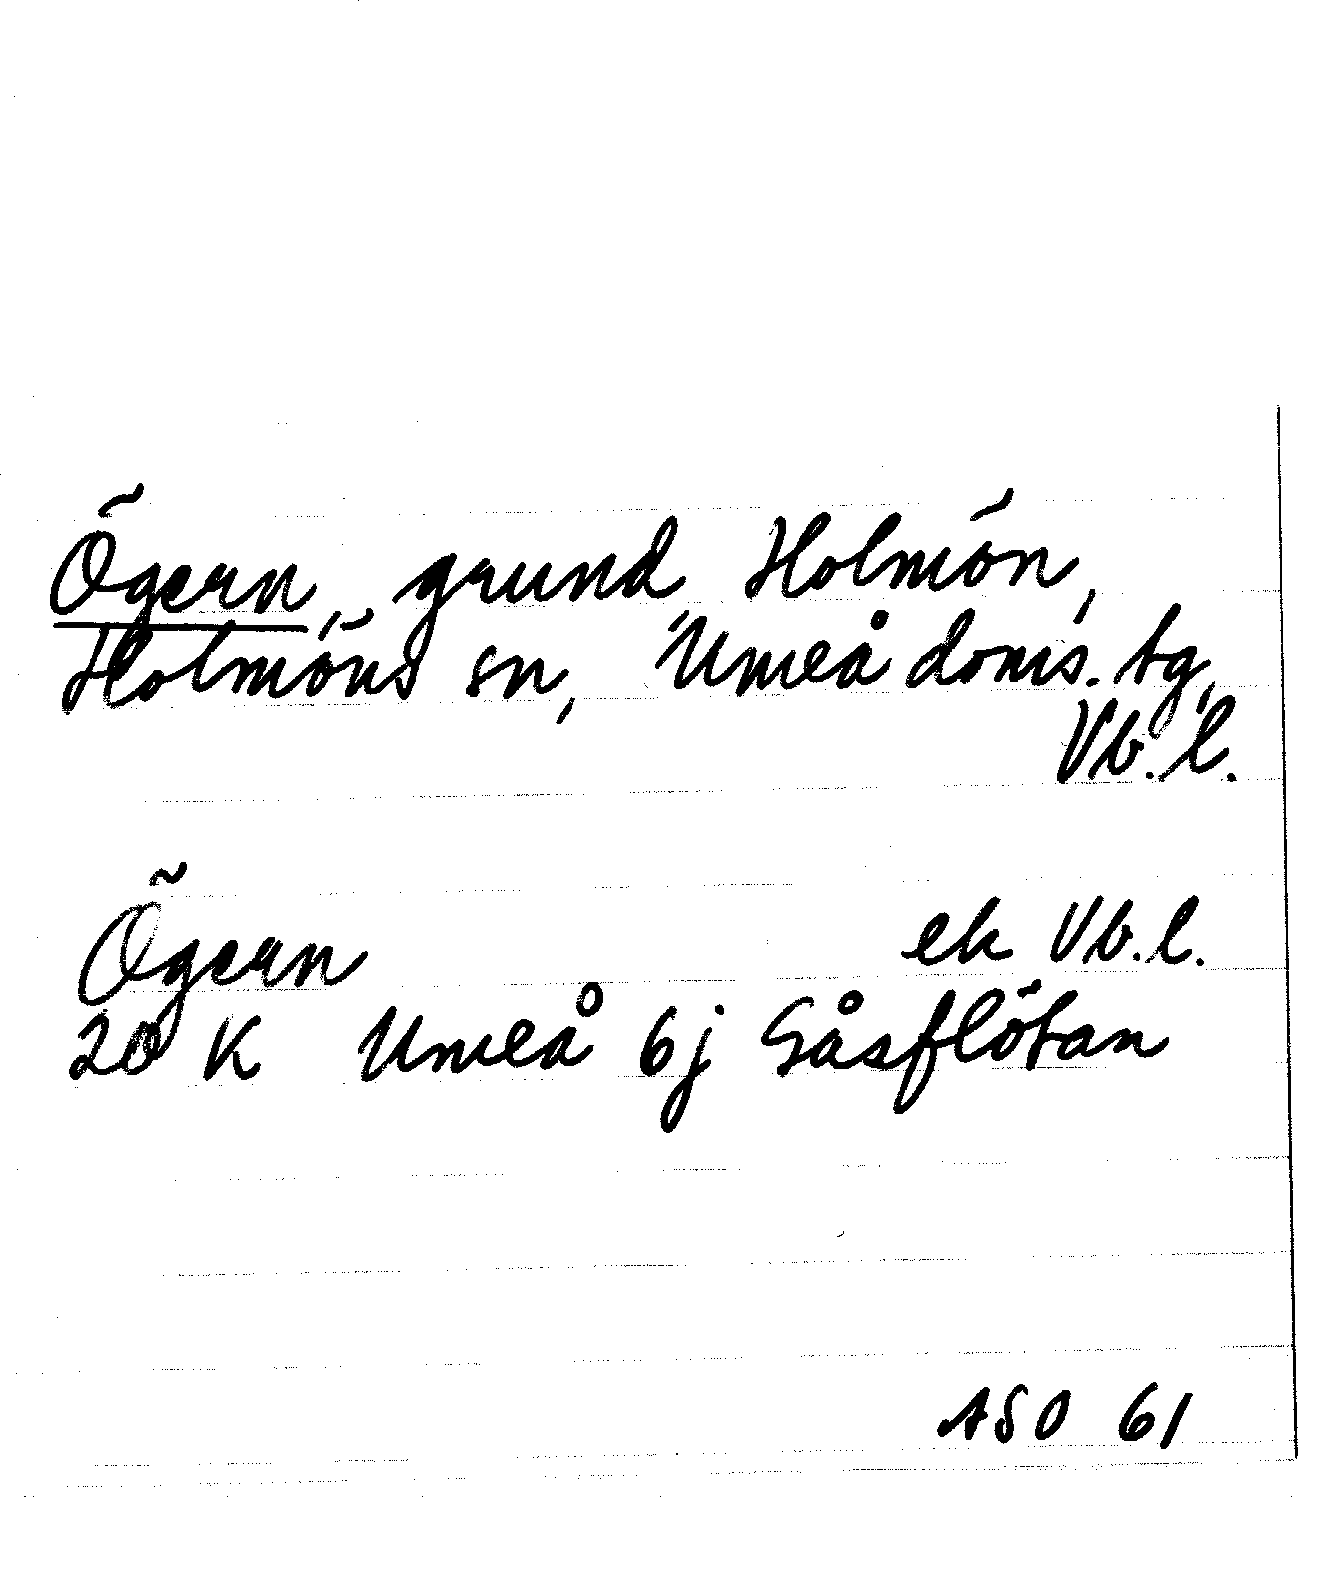 Ögern, grund, Holmön,
Holmöns sn, Umeå doms. tg,
Vb. l.
Ögern ek Vb. l.
20 K Umeå 6j Gåsflötan
ASO 61